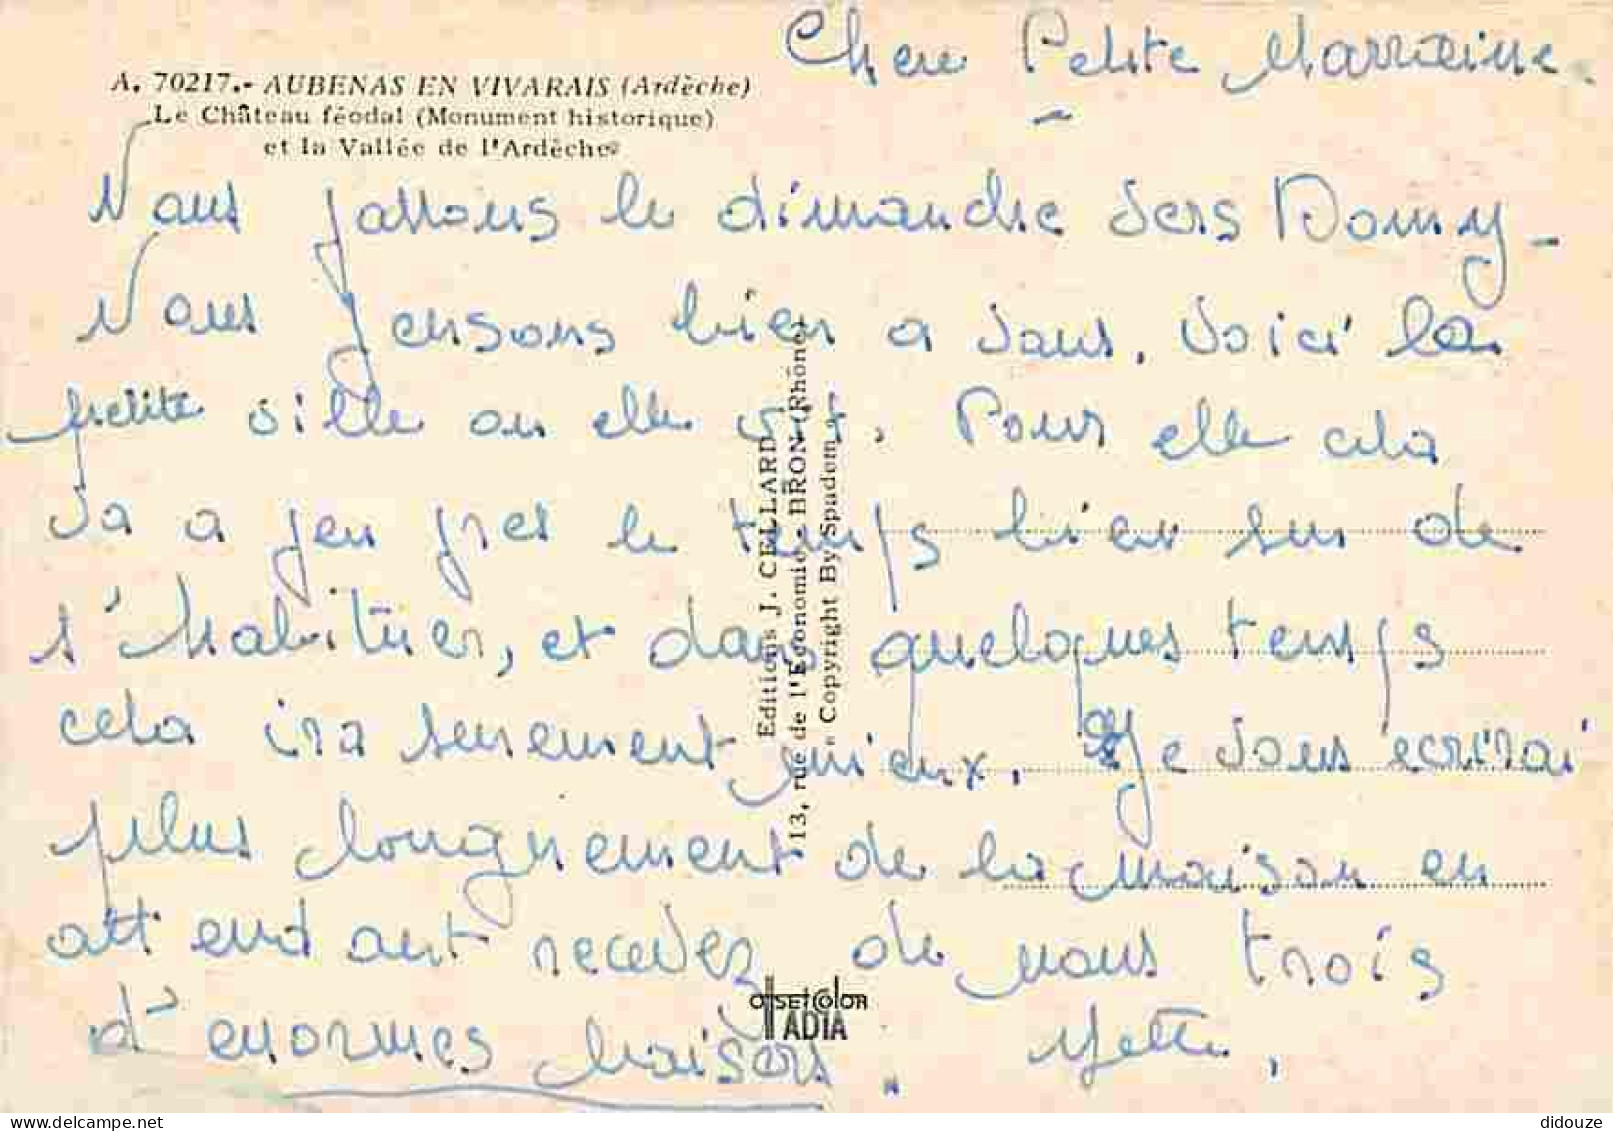 Chere Petite Marraine.
A. 70217.- AUBENAS EN VIVARAIS (Ardèche)
Le Château féodal (Monument historique)
et la Vallée de l'Ardèche
Nous partons le dimanche vers
Nous pensons bien a vous. Voici la
petite ville ou elle vit. Pour elle cela
va a peu pres le temps bien sur de
s'habituer, et dans quelques temps
cela ira surement mieux. Je vous écrirai
plus longuement de la maison en
attendant recevez de nous trois
d'enormes baisers.
Editions J. CELLARD
13, rue de l'Economie - BRON (Rhône)
"Copyright By Spadem"
OFFSET COLOR
ADIA
didouze